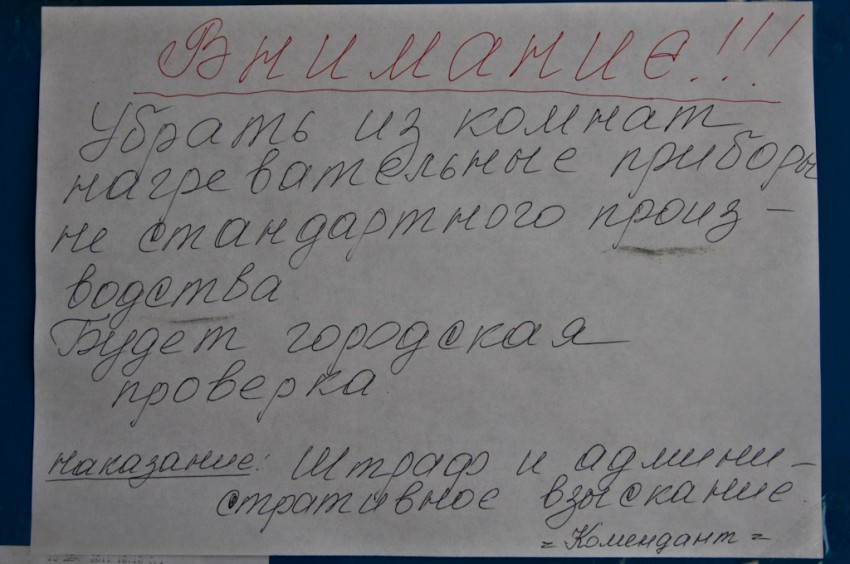 Внимание!!!
Убрать из комнат
нагревательные приборы
не стандартного произ-
водства
Будет городская
проверка
наказание: Штраф и админи-
стративное взыскание.
= Комендант =